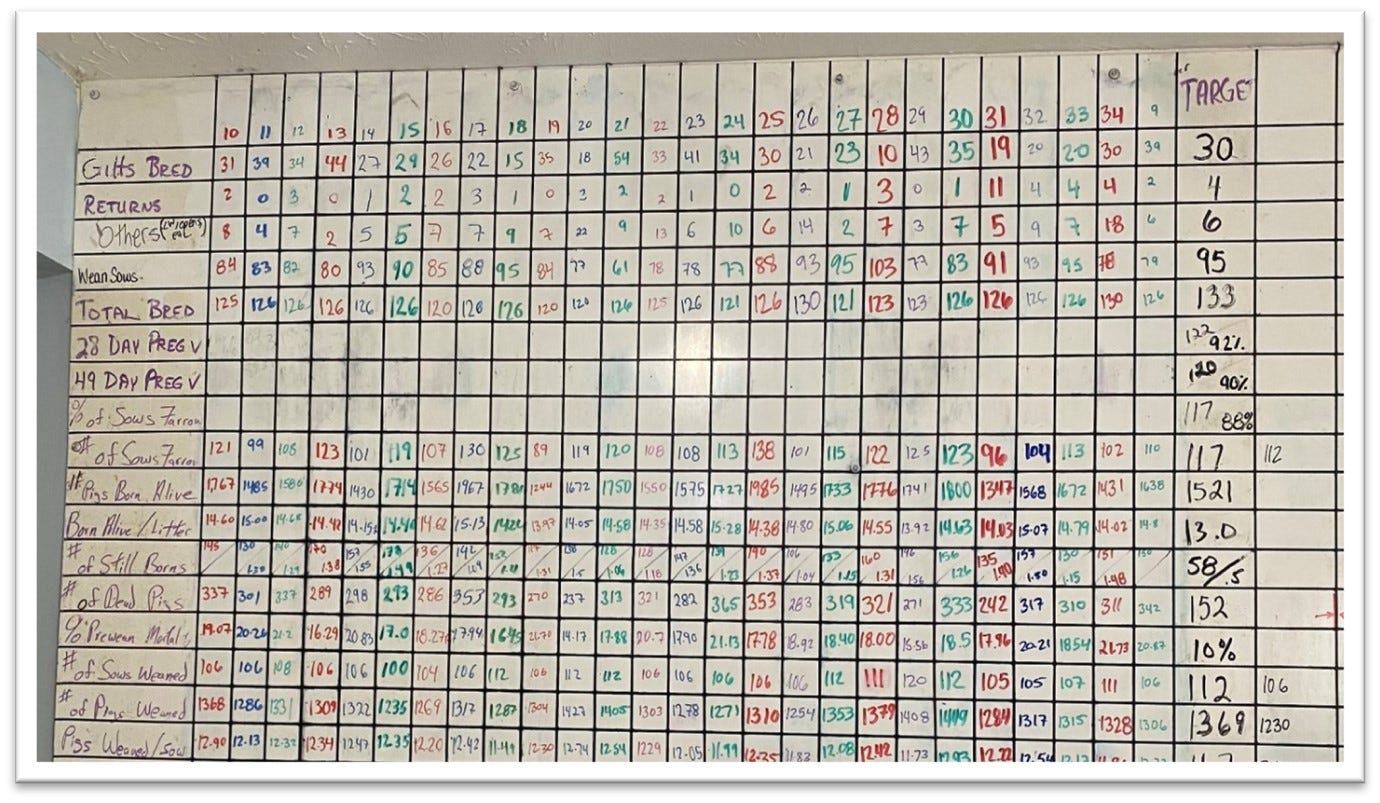 TARGET
10 11 12 13 14 15 16 17 18 19 20 21 22 23 24 25 26 27 28 29 30 31 32 33 34 9
Gilts Bred 31 39 34 44 27 29 26 22 15 35 18 54 33 41 34 30 21 23 10 43 35 19 20 20 30 39 30
Returns 2 0 3 0 1 2 2 3 1 0 3 2 2 1 0 2 2 1 3 0 1 11 4 4 4 2 4
Others 8 4 7 2 5 5 7 7 9 7 22 9 13 6 10 6 14 2 7 3 7 5 9 7 18 6 6
Wean Sows. 84 83 82 80 93 90 85 88 95 84 77 61 78 78 77 88 93 95 103 77 83 91 93 95 78 79 95
Total Bred 125 126 126 126 126 126 120 120 126 120 120 126 125 126 121 126 130 121 123 123 126 126 126 126 130 126 133
28 Day Preg V 122 92%
49 Day Preg V 120 90%
% of Sows Farrow 117 88%
# of Sows Farrow 121 99 108 123 101 119 107 130 125 89 119 120 108 108 113 138 101 115 122 125 123 96 104 113 102 110 117 112
# Pigs Born Alive 1767 1485 1586 1774 1430 1714 1565 1967 1780 1244 1672 1750 1550 1575 1727 1985 1495 1733 1776 1741 1800 1347 1568 1672 1431 1638 1521
Born Alive/Litter 14.60 15.00 14.68 14.42 14.15 14.40 14.62 15.13 14.24 13.97 14.05 14.58 14.35 14.58 15.28 14.38 14.80 15.06 14.55 13.92 14.63 14.03 15.07 14.79 14.02 14.8 13.0
# of Still Borns 145 130 140 170 157 136 128 128 147 139 190 106 133 160 146 156 135 157 130 151 150 58/.5
1.30 1.29 1.38 1.55 1.49 1.27 1.31 1.5 1.06 1.18 1.36 1.23 1.37 1.04 1.15 1.31 1.26 1.40 1.50 1.15 1.48
# of Dead Pigs 337 301 337 289 298 293 286 353 293 270 237 313 321 282 365 353 283 319 321 271 333 242 317 310 311 342 152
% Prewean Mortal 19.07 20.26 21.2 16.29 20.83 17.0 18.27 17.94 16.45 21.70 14.17 17.88 20.7 17.90 21.13 17.78 18.92 18.40 18.00 15.56 18.5 17.96 20.21 18.54 21.73 20.87 10%
# of Sows Weaned 106 106 108 106 106 100 104 106 112 106 112 112 106 106 106 106 106 112 111 120 112 105 105 107 111 106 112 106
# of Pigs Weaned 1368 1286 1331 1309 1322 1235 1269 1317 1287 1304 1427 1405 1303 1278 1271 1310 1254 1353 1379 1408 1449 1284 1317 1315 1328 1306 1369 1230
Pigs Weaned/Sow 12.90 12.13 12.32 12.34 12.47 12.35 12.20 12.42 11.49 12.30 12.74 12.54 12.29 12.05 11.99 12.35 11.83 12.08 12.42 11.73 12.93 12.22 12.54